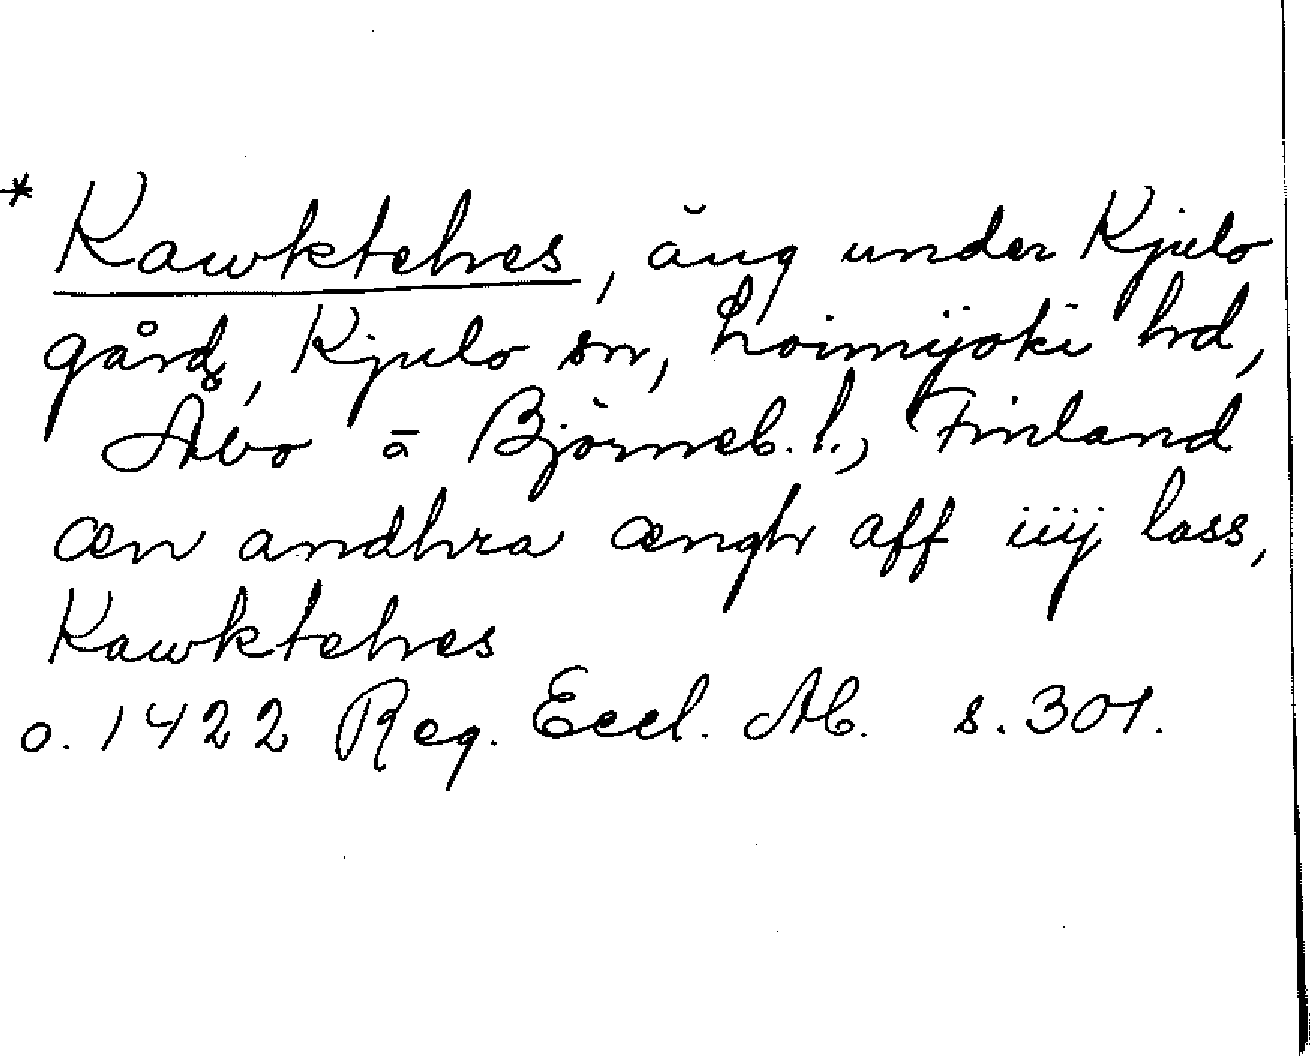 * Kawktehres, äng under Kjulo
gård, Kjulo sn, Loimijoki hd,
Åbo o Björneb. l., Finland
æn andhra ængh aff iiij lass,
Kawktehres
o. 1422 Reg. Eccl. Ab. s. 301.